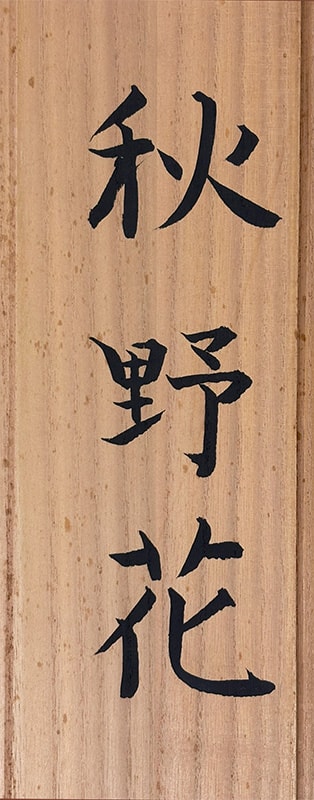 秋野花